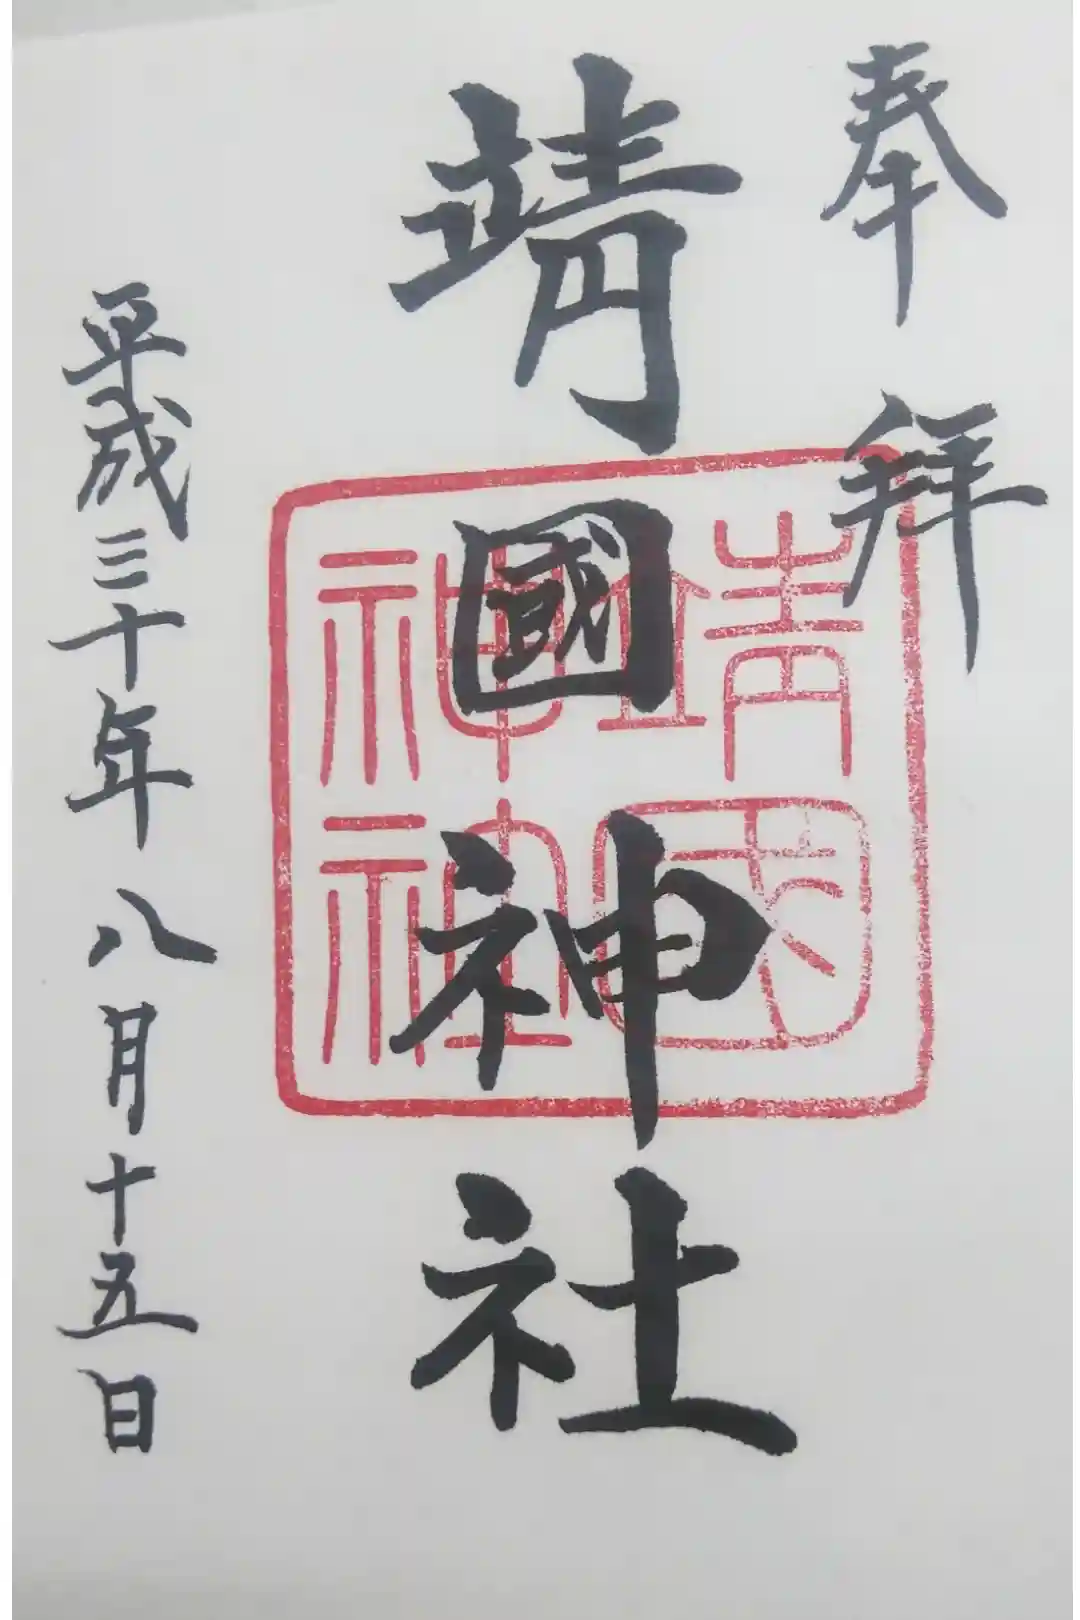 奉拝
靖國神社
靖國
神社
平成三十年八月十五日